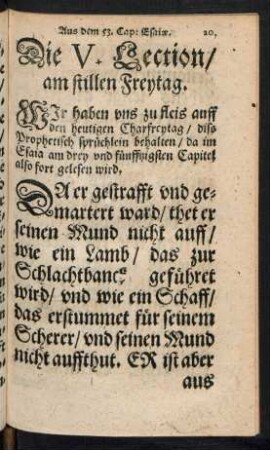 Aus dem 53. Cap: Esaiæ. 20.
Die V. Lection/
am stillen Freytag.
WIr haben vns zu fleis auff
den heutigen Charfreytag/ diß
Prophetisch sprüchlein behalten/ da im
Esaia am drey vnd fünffzigsten Capitel
also fort gelesen wird,
DA er gestrafft vnd ge-
martert ward/ thet er
seinen Mund nicht auff/
wie ein Lamb/ das zur
Schlachtbanck geführet
wird/ vnd wie ein Schaff/
das erstummet für seinem
Scherer/ vnd seinen Mund
nicht auffthut. ER ist aber
aus